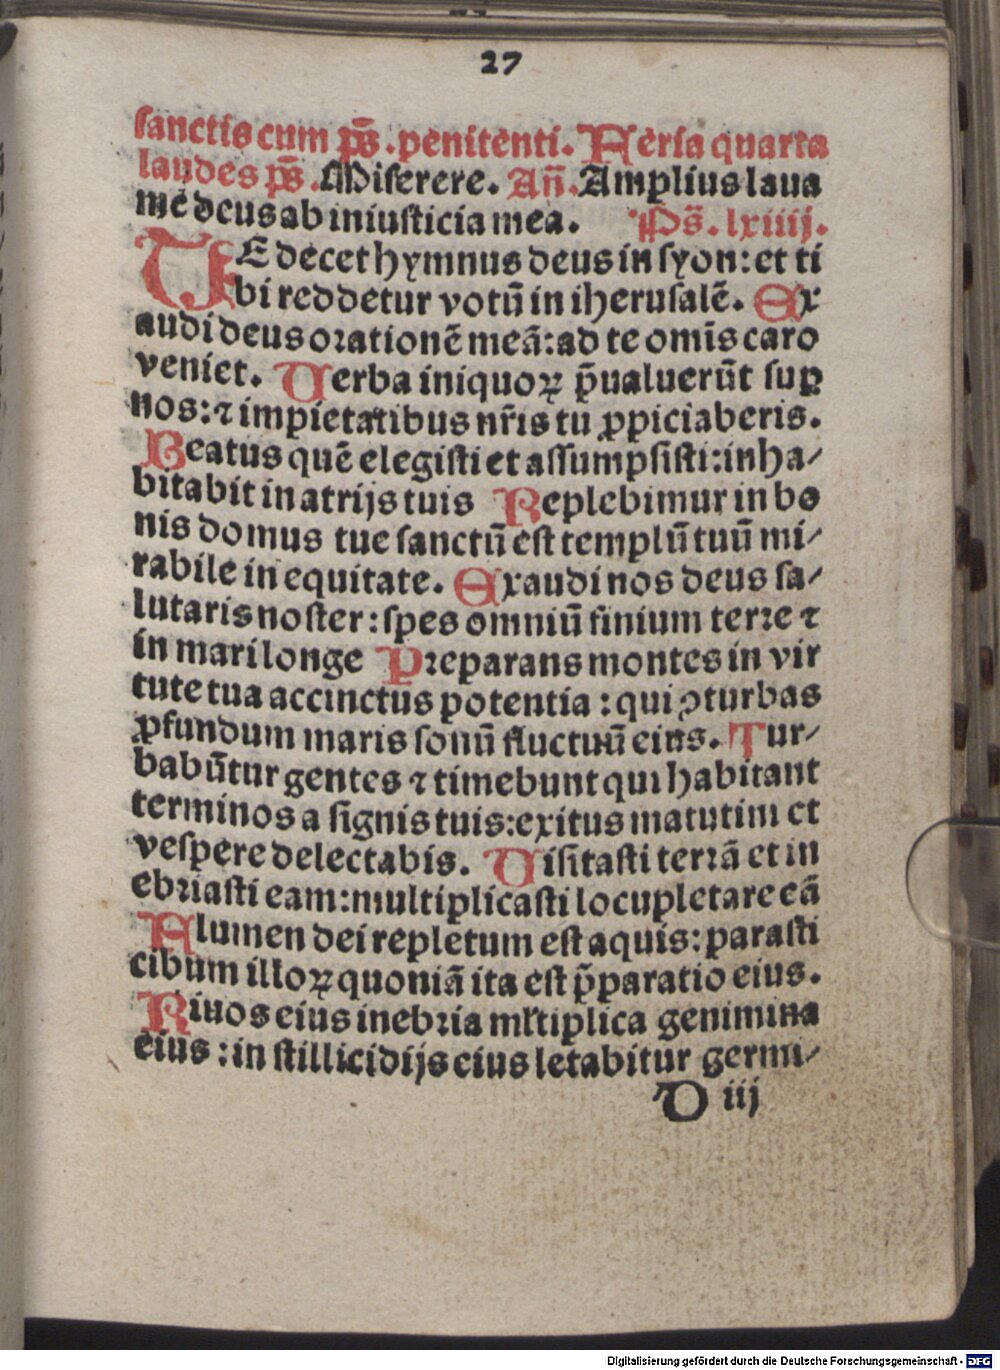 27
ſanctis cum ps̄. penitenti. Feria quarta
laudes ps̄. Miſerere. Añ. Amplius laua
me deus ab iniuſticia mea. Ps̄. lxiiij.
TE decet hymnus deus in ſyon: et ti
bi reddetur votū in iheruſalē. Ex
audi deus orationē meā: ad te omīs caro
veniet. Uerba iniquoꝝ p̄ualuerūt ſuꝑ
nos: ⁊ impietatibus nr̄is tu ꝓpiciaberis.
Beatus quē elegiſti et aſſumpſiſti: inha⸗
bitabit in atrijs tuis Replebimur in bo
nis domus tue ſanctū eſt templū tuū mi⸗
rabile in equitate. Exaudi nos deus ſa⸗
lutaris noſter: ſpes omniū finium terre ⁊
in mari longe Preparans montes in vir
tute tua accinctus potentia: qui ꝯturbas
ꝓfundum maris ſonū fluctuū eius. Tur⸗
babūtur gentes ⁊ timebunt qui habitant
terminos a ſignis tuis: exitus matutini et
veſpere delectabis. Uiſitaſti terrā et in
ebriaſti eam: multiplicaſti locupletare eā
Flumen dei repletum eſt aquis: paraſti
cibum illoꝝ quoniā ita eſt p̄paratio eius.
Riuos eius inebria ml̄tiplica genimina
eius: in ſtillicidijs eius letabitur germi⸗
D iij
Digitalisierung gefördert durch die Deutsche Forschungsgemeinschaft - DFG